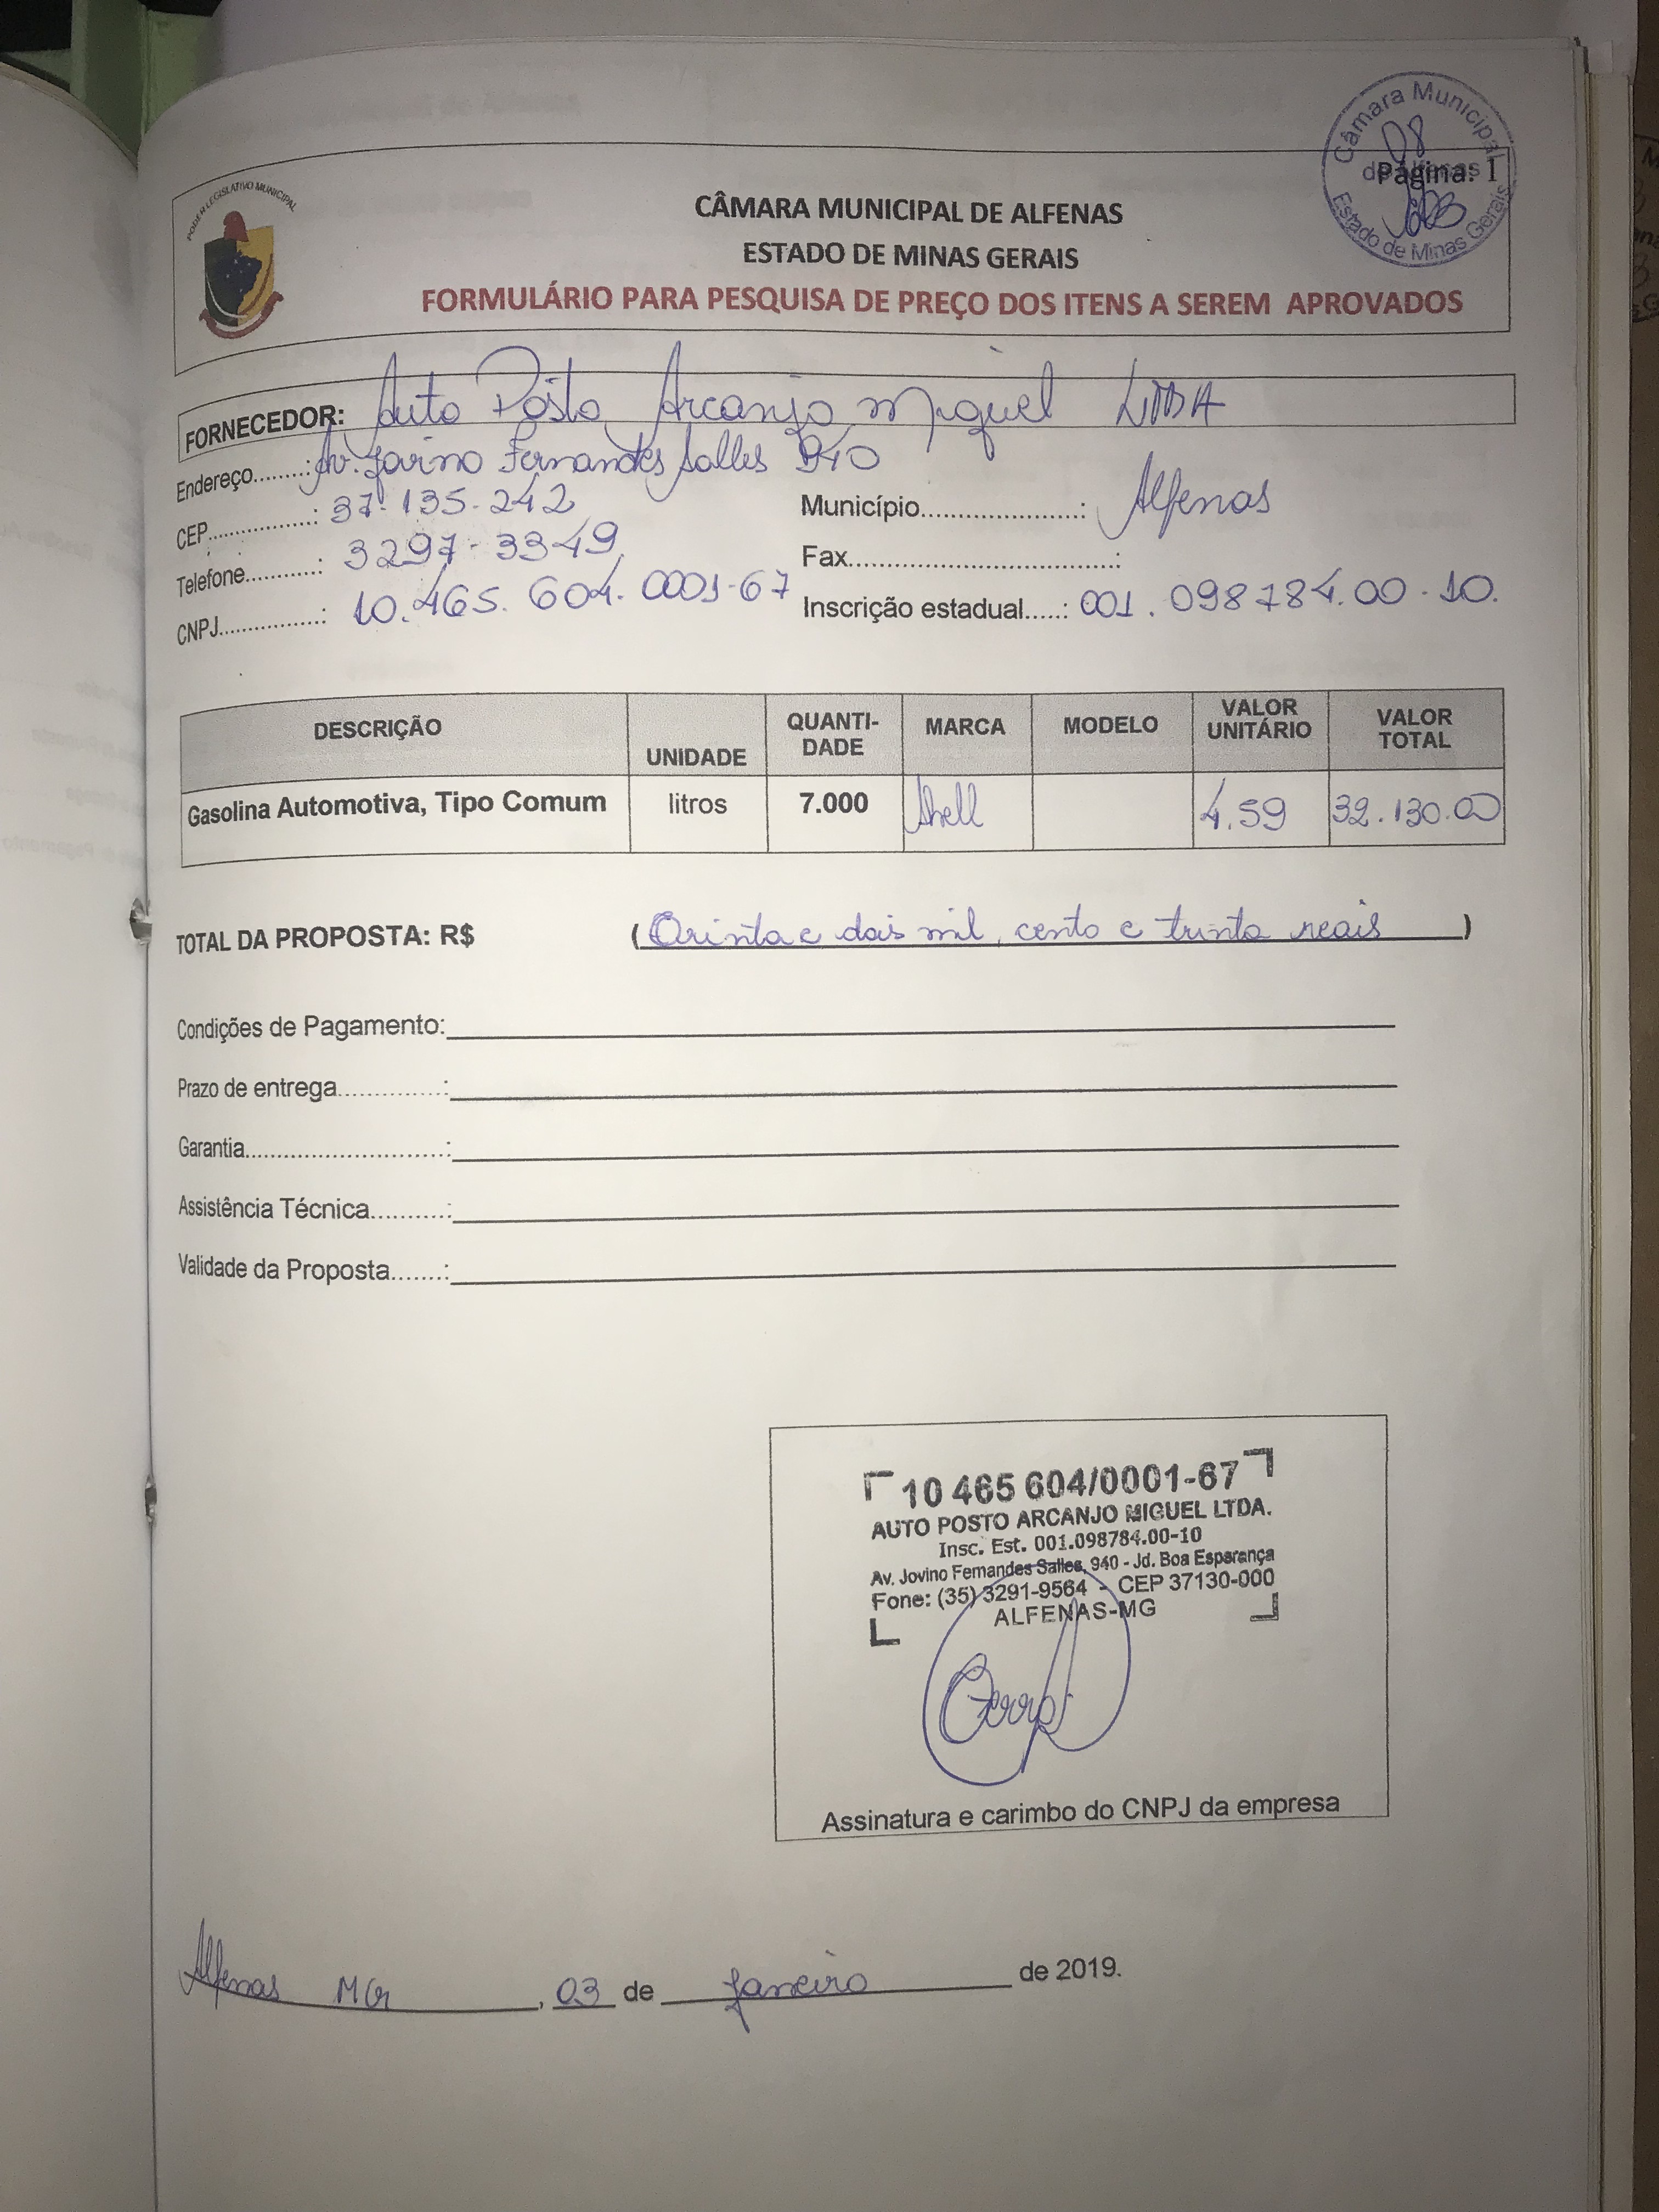 Câmara Municipal
08
de Alfenas
Página: 1
Estado de Minas Gerais
PODER LEGISLATIVO MUNICIPAL
CÂMARA MUNICIPAL DE ALFENAS
ESTADO DE MINAS GERAIS
FORMULÁRIO PARA PESQUISA DE PREÇO DOS ITENS A SEREM APROVADOS
FORNECEDOR: Auto Posto Arcanjo Miguel LTDA
Endereço.......: Av. Jovino Fernandes Salles 940
CEP................: 37.135-242 Município......................: Alfenas
Telefone...........: 3297-3349 Fax....................................:
CNPJ................: 10.465.604.0001-67 Inscrição estadual.....: 001.098784.00-10.
DESCRIÇÃO UNIDADE QUANTI-DADE MARCA MODELO VALOR UNITÁRIO VALOR TOTAL
Gasolina Automotiva, Tipo Comum litros 7.000 Shell 4.59 32.130.00
TOTAL DA PROPOSTA: R$ (Trinta e dois mil, cento e trinta reais)
Condições de Pagamento:
Prazo de entrega...............:
Garantia............................:
Assistência Técnica...........:
Validade da Proposta.......:
10 465 604/0001-67
AUTO POSTO ARCANJO MIGUEL LTDA.
Insc. Est. 001.098784.00-10
Av. Jovino Fernandes Salles, 940 - Jd. Boa Esperança
Fone: (35) 3291-9564 - CEP 37130-000
ALFENAS-MG
Assinatura e carimbo do CNPJ da empresa
Alfenas MG, 03 de Janeiro de 2019.